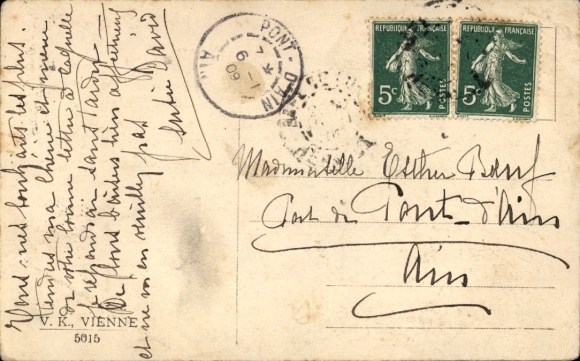 Tous mes souhaits les plus
tendres ma chérie et mon
de votre bonne lettre à laquelle
je répondrai sans tarder
De bons baisers bien affectueux
et ne m'en veuillez pas
David
V. K., VIENNE
5015
PONT D'AIN
AIN
7 *
1
09
REPUBLIQUE FRANÇAISE
5c
POSTES
REPUBLIQUE FRANÇAISE
5c
POSTES
Mademoiselle Esther
Pont-d'Ain
Ain